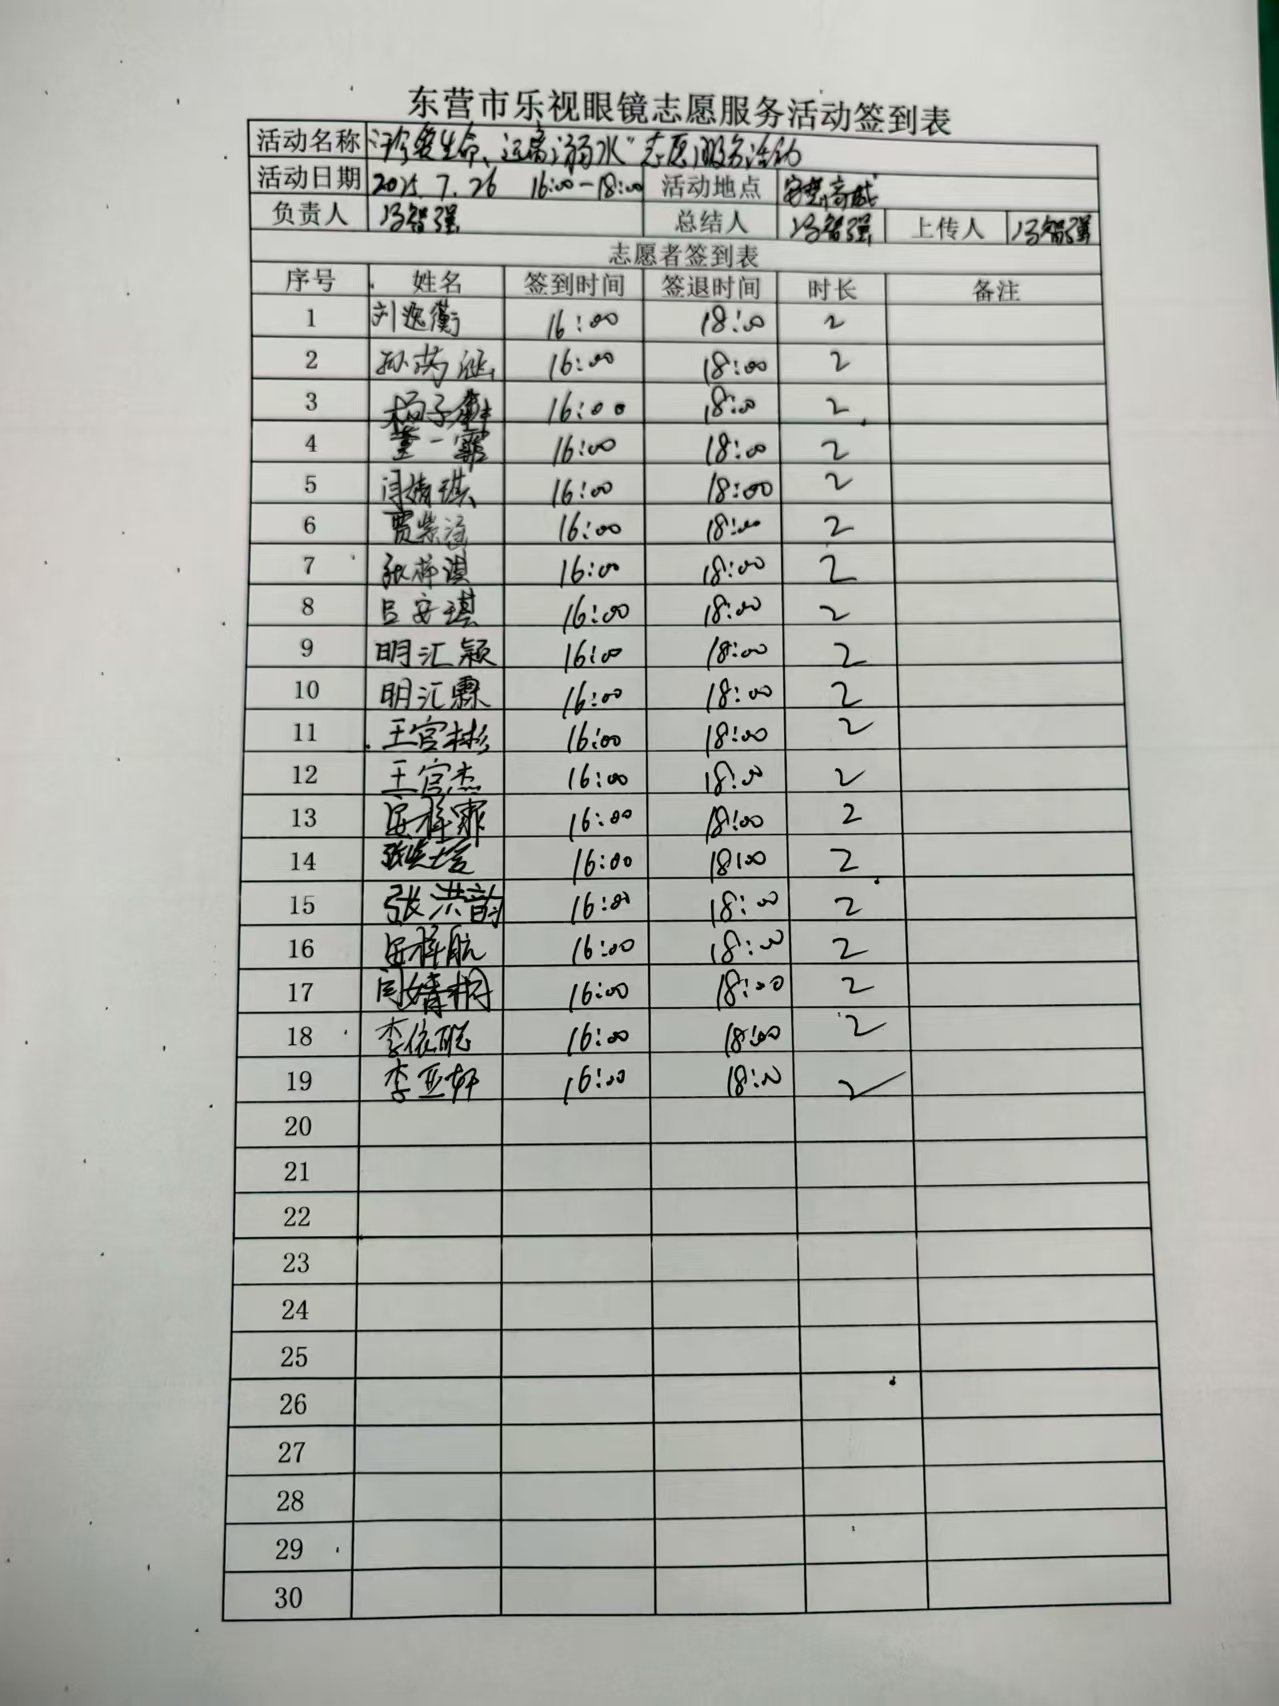 东营市乐视眼镜志愿服务活动签到表
活动名称 “珍爱生命、远离溺水”志愿服务活动
活动日期 2025.7.26 16:00-18:00 活动地点
负责人 冯智强 总结人 冯智强 上传人 冯智强
志愿者签到表
序号 姓名 签到时间 签退时间 时长 备注
1 刘逸衡 16:00 18:00 2
2 16:00 18:00 2
3 16:00 18:00 2
4 董一霏 16:00 18:00 2
5 闫婧琪 16:00 18:00 2
6 16:00 18:00 2
7 张梓淇 16:00 18:00 2
8 吕安琪 16:00 18:00 2
9 明汇颖 16:00 18:00 2
10 明汇霖 16:00 18:00 2
11 王官彬 16:00 18:00 2
12 王官杰 16:00 18:00 2
13 安梓霏 16:00 18:00 2
14 16:00 18:00 2
15 张洪韵 16:00 18:00 2
16 安梓航 16:00 18:00 2
17 闫婧桐 16:00 18:00 2
18 李依聪 16:00 18:00 2
19 李亚轩 16:00 18:00 2
20
21
22
23
24
25
26
27
28
29
30